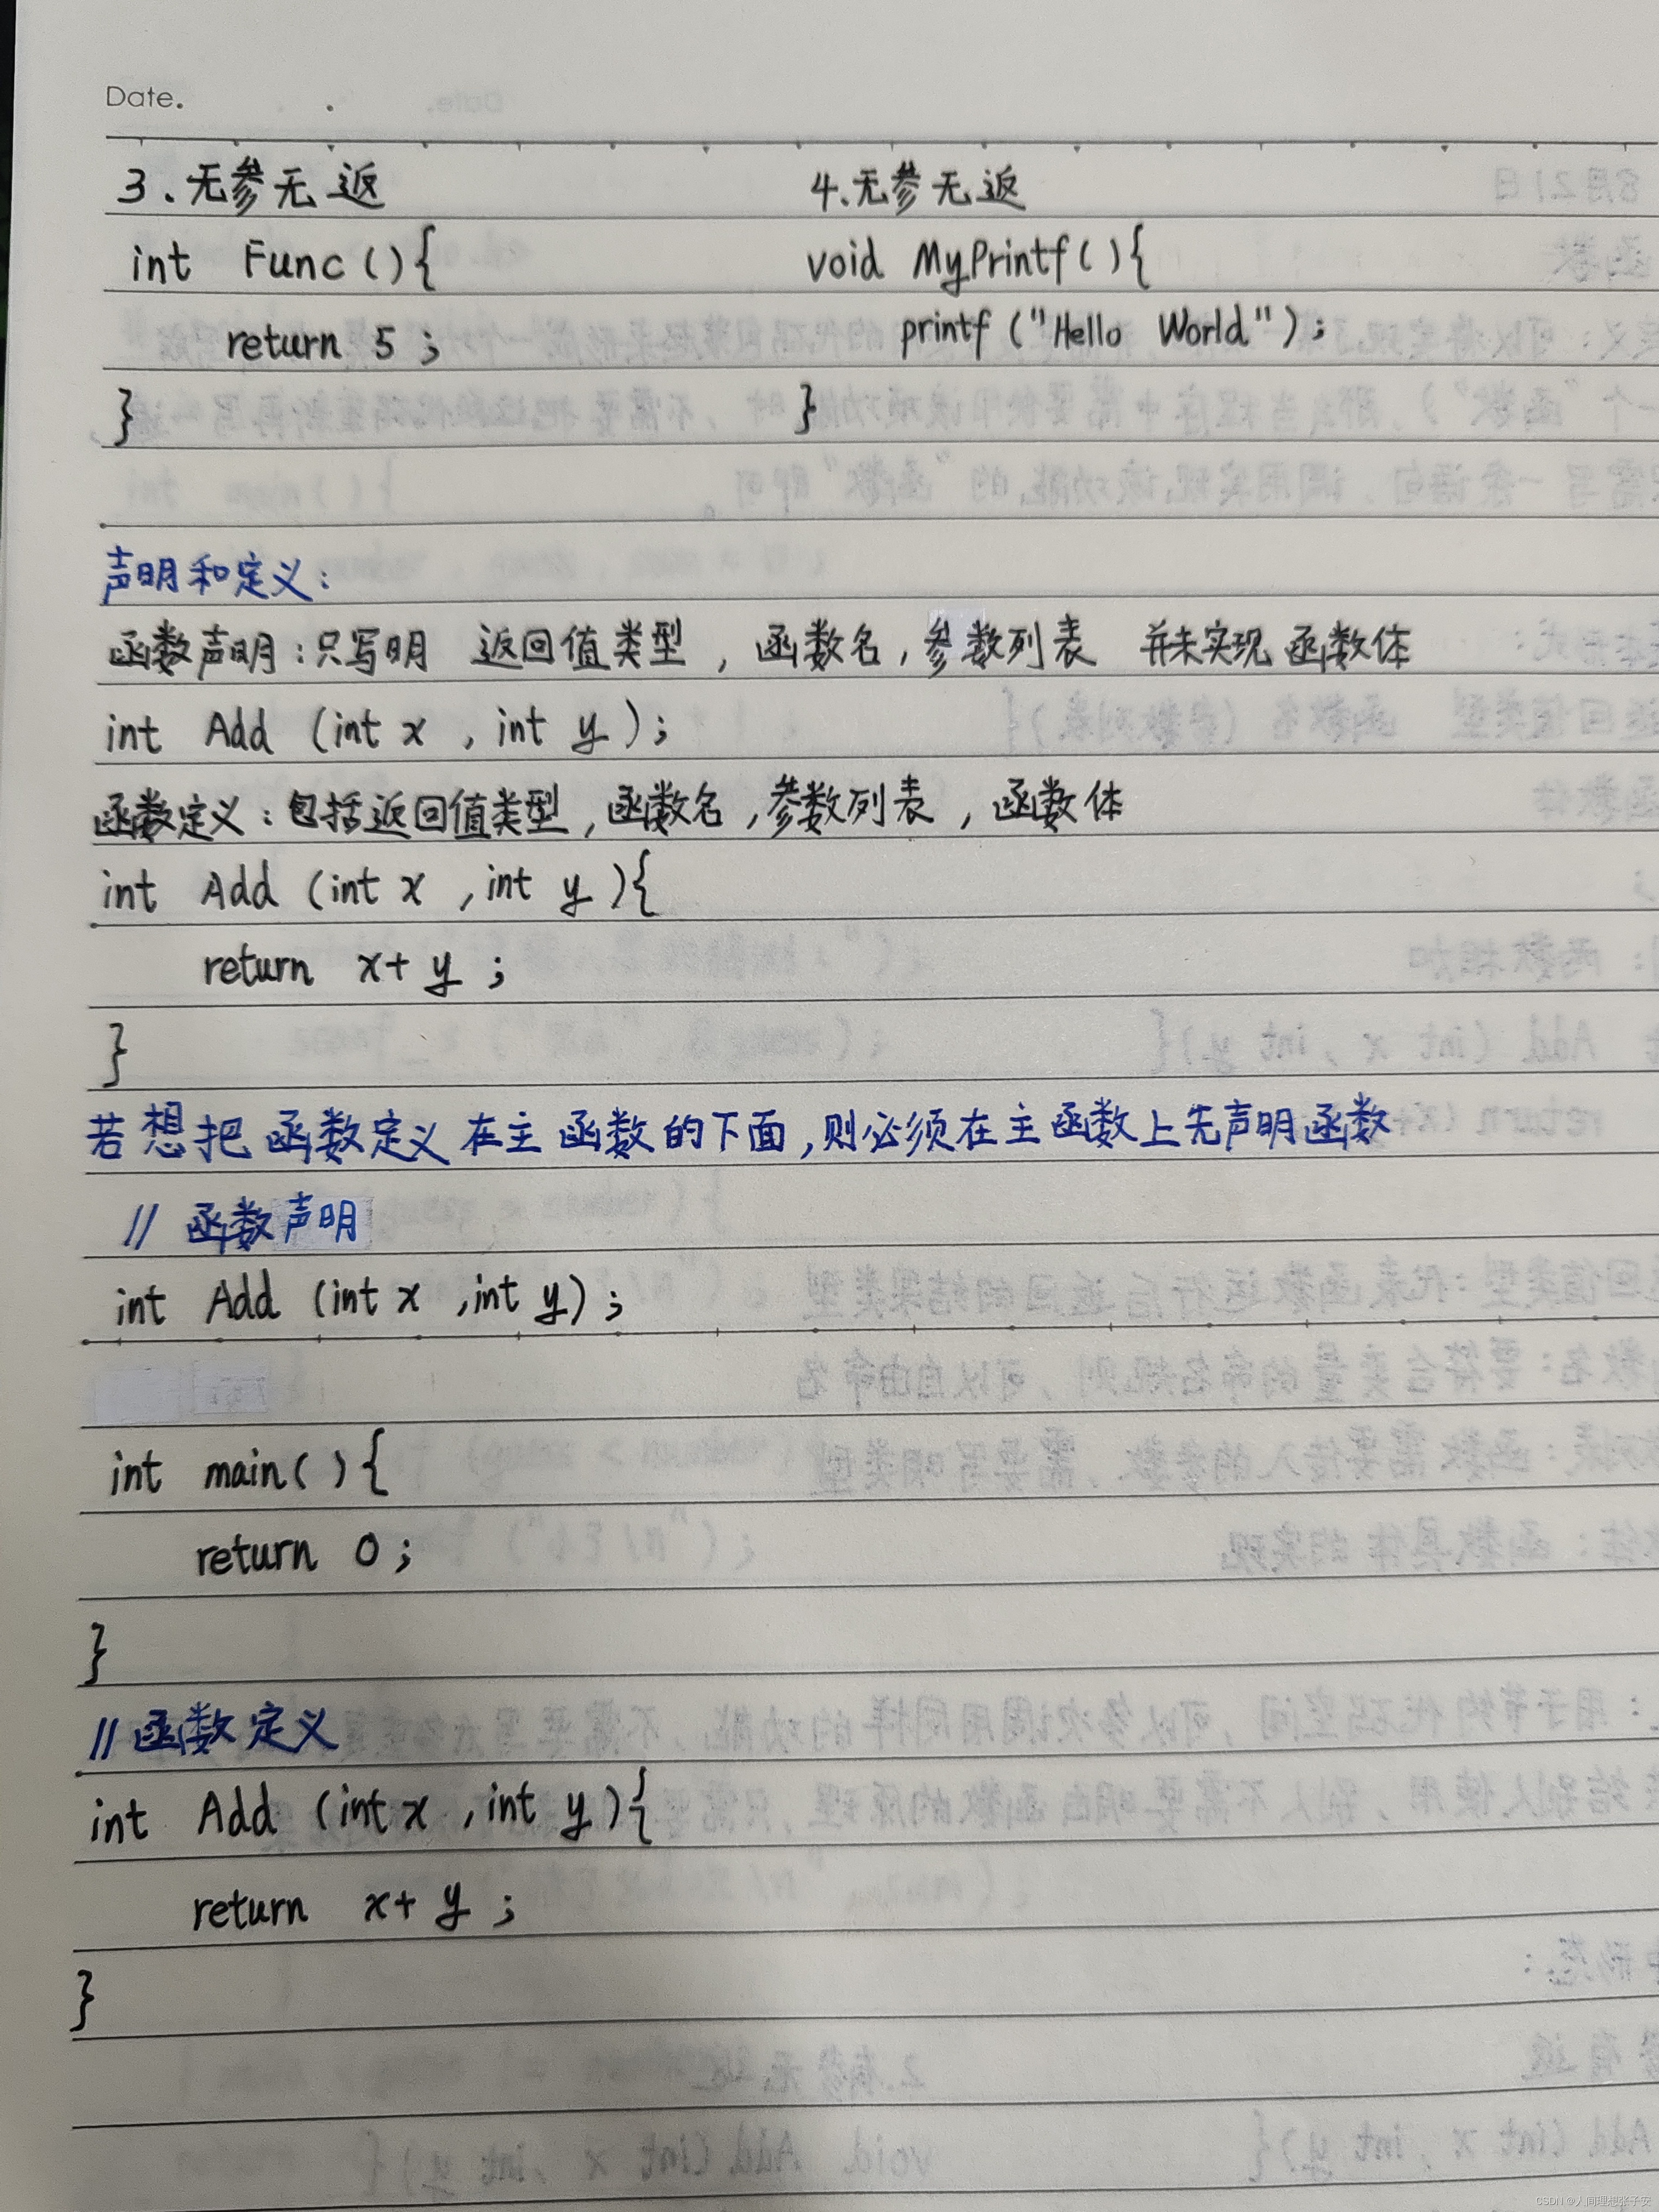 Date.
3.无参无返 4.无参无返
int Func(){ void MyPrintf(){
return 5; printf("Hello World");
} }
声明和定义:
函数声明:只写明 返回值类型,函数名,参数列表 并未实现函数体
int Add (int x ,int y );
函数定义:包括返回值类型,函数名,参数列表,函数体
int Add (int x ,int y ){
return x+ y ;
}
若想把函数定义在主函数的下面,则必须在主函数上先声明函数
// 函数声明
int Add (int x ,int y);
int main(){
return 0;
}
//函数定义
int Add (int x ,int y){
return x+ y ;
}
CSDN @人间理想张子安